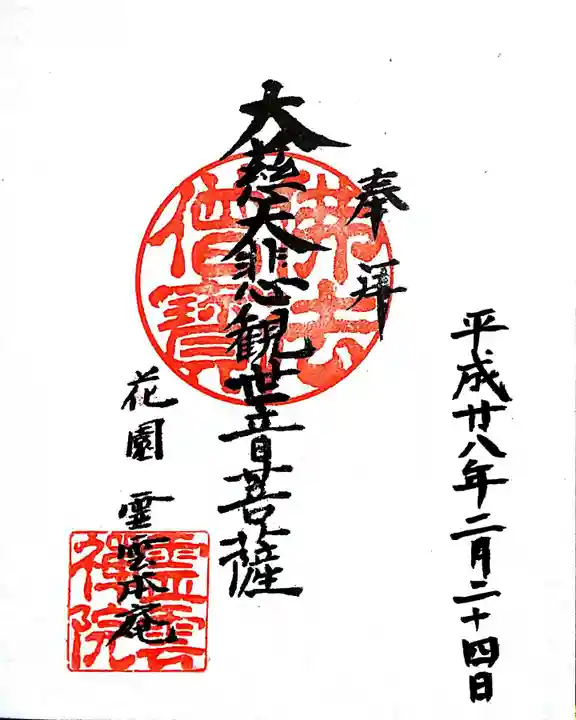 平成廿八年二月二十四日
奉拝
大慈大悲観世音菩薩
佛法
僧寶
花園 霊雲本庵
霊雲
禅院